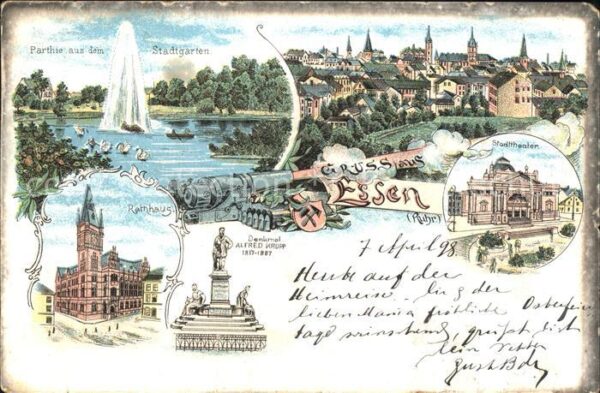 Parthie aus dem Stadtgarten
GRUSS aus
Essen
(Ruhr)
Stadttheater
Rathaus
Denkmal
ALFRED KRUPP
1817-1887
7 April 98
Heute auf der
Heimreise
lieben Mama fröhliche
grüßt dich
dein